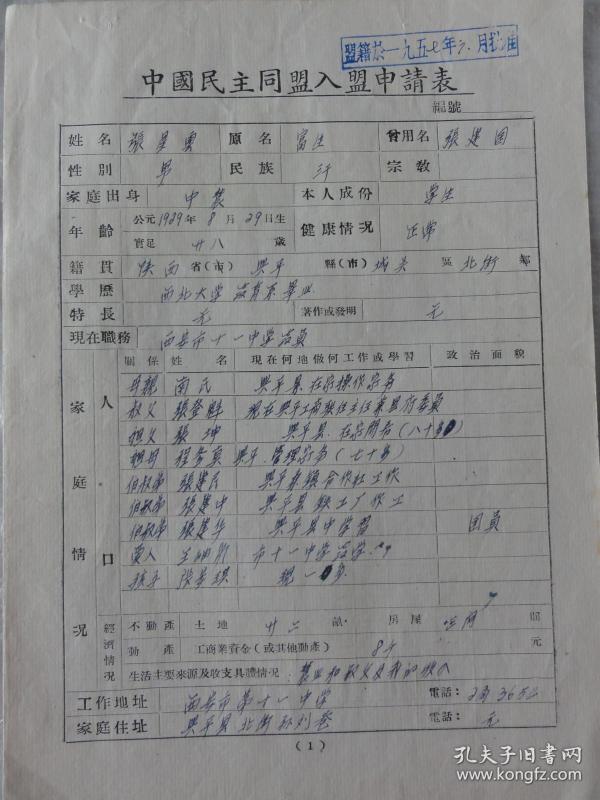 盟籍於一九五七年六月批准
中國民主同盟入盟申請表
編號
姓名 張星寓 原名 富生 曾用名 張建国
性別 男 民族 汗 宗教
家庭出身 中農 本人成份 学生
年齡 公元1929年8月29日生 實足 廿八 歲 健康情况 正常
籍貫 陕西 省(市) 興平 縣(市) 城关 區 北街 鄉
學歷 西北大学 教育系畢业
特長 无 著作或發明 无
現在職務 西安市十一中学教員
家庭情况 人口 關係 姓名 現在何地做何工作或學習 政治面貌
母親 南氏 興平县在家操作家务
叔父 張登鰲 現在興平工商联任主任兼县府委員
祖父 張坤 興平县在家閑着(八十多)
祖母 程秀貞 興平 管理家务(七十多)
伯叔弟 張建民 興平 镇合作社工作
伯叔弟 張建中 興平县 鉄工厂作工
伯叔弟 張建华 興平县中学習 团員
愛人 市十一中学
孩子 現一
經濟情况 不動產 土地 廿二 畝 房屋 間
動產 工商業資金(或其他動產) 8千 元
生活主要來源及收支具體情况 農业和叔父及我的收入
工作地址 西安市第十一中学 電話:
家庭住址 興平县北街 巷 電話: 无
(1)
孔夫子旧书网
www.kongfz.com